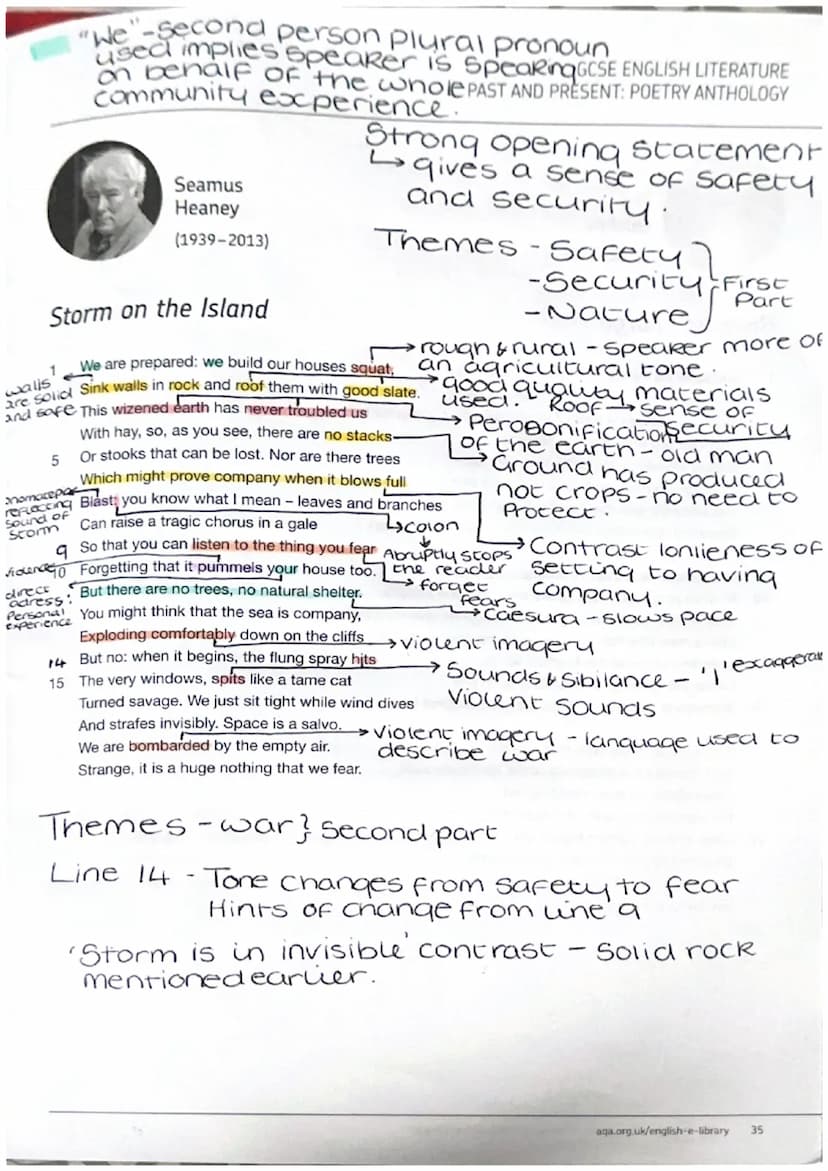 "We"-second person plural pronoun
used implies speaker is speaking
on behalf of the whole
community experience.
GCSE ENGLISH LITERATURE
PAST AND PRESENT: POETRY ANTHOLOGY
Strong opening statement
↳ gives a sense of safety
and security.
Seamus
Heaney
(1939–2013)
Themes - Safety
-Security
-Nature
First
Part
Storm on the Island
rough & rural - speaker more of
an agricultural tone.
1 We are prepared: we build our houses squat,
walls
are solid
and safe
Sink walls in rock and roof them with good slate.
good quality materials
used. Roof → sense of
security
This wizened earth has never troubled us
Personification
of the earth - old man
With hay, so, as you see, there are no stacks
Ground has produced
not crops - no need to
Protect.
5 Or stooks that can be lost. Nor are there trees
Which might prove company when it blows full
reflecting
sound of
storm
Blast: you know what I mean – leaves and branches
Can raise a tragic chorus in a gale
colon
Abruptly stops
the reader
9 So that you can listen to the thing you fear
Contrast lonlieness of
setting to having
company.
violence
10 Forgetting that it pummels your house too.
forget
fears
direct
adress:
Personal
experience
But there are no trees, no natural shelter.
Caesura - slows pace
You might think that the sea is company,
Exploding comfortably down on the cliffs
violent imagery
14 But no: when it begins, the flung spray hits
Sounds & Sibilance - 'I' exaggerat
Violent sounds
15 The very windows, spits like a tame cat
Turned savage. We just sit tight while wind dives
And strafes invisibly. Space is a salvo.
Violent imagery - language used to
describe war
We are bombarded by the empty air.
Strange, it is a huge nothing that we fear.
Themes - war } Second part
Line 14 - Tone changes from safety to fear
Hints of change from line 9
'Storm is in invisible' contrast - Solid rock
mentioned earlier.
aqa.org.uk/english-e-library 35